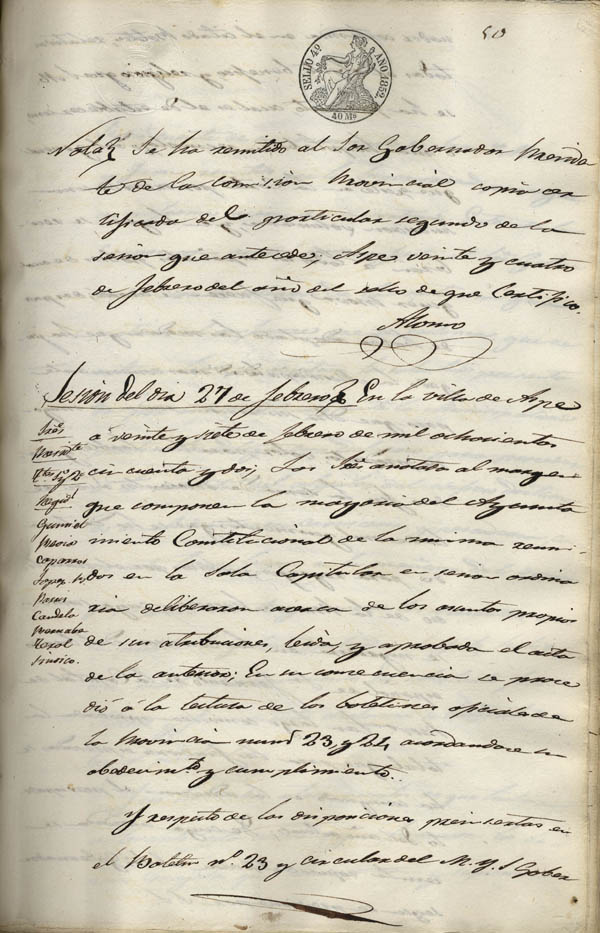 50
SELLO 4º AÑO 1852
40 Ms
Nota Se ha remitido al Sor Gobernador Presiden
te de la comision Provincial copia cer
tificada del particular segundo de la
sesion que antecede; Aspe veinte y cuatro
de febrero del año del sello de que Certifico.
Alonso
Sesion del dia 27 de febrero En la villa de Aspe
á veinte y siete de febrero de mil ochocientos
cincuenta y dos; Los Sres anotados al margen
que componen la mayoria del Ayunta
miento Constitucional de la misma reuni
dos en la Sala Capitular en sesion ordina
ria deliberaron acerca de los asuntos propios
de sus atribuciones, leida y aprobada el acta
de la anterior; En su consecuencia se proce
dió á la lectura de los boletines oficiales de
la Provincia num 23 y 24, acordandose su
obedecimto y cumplimiento.
Sres
Presidte
Caparros
Lopez
Candela
Bernabe
Sindico.
Y respecto de las disposiciones pre insertas en
el Boletin nº 23 y circular del M. Y. S Gober